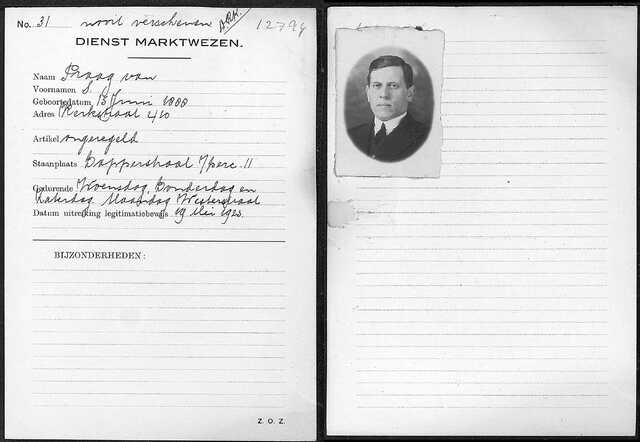 No. 31 nooit verschenen
DIENST MARKTWEZEN.
Naam Praag van
Voornamen S.
Geboortedatum 13 Juni 1888
Adres Kerkstraat 410
Artikel ongeregeld
Staanplaats Dapperstraat perc. 11
Gedurende Woensdag, Donderdag en
Zaterdag. Maandag Westerstraat
Datum uitreiking legitimatiebewijs 19 Mei 1923.
BIJZONDERHEDEN:
Z. O. Z.